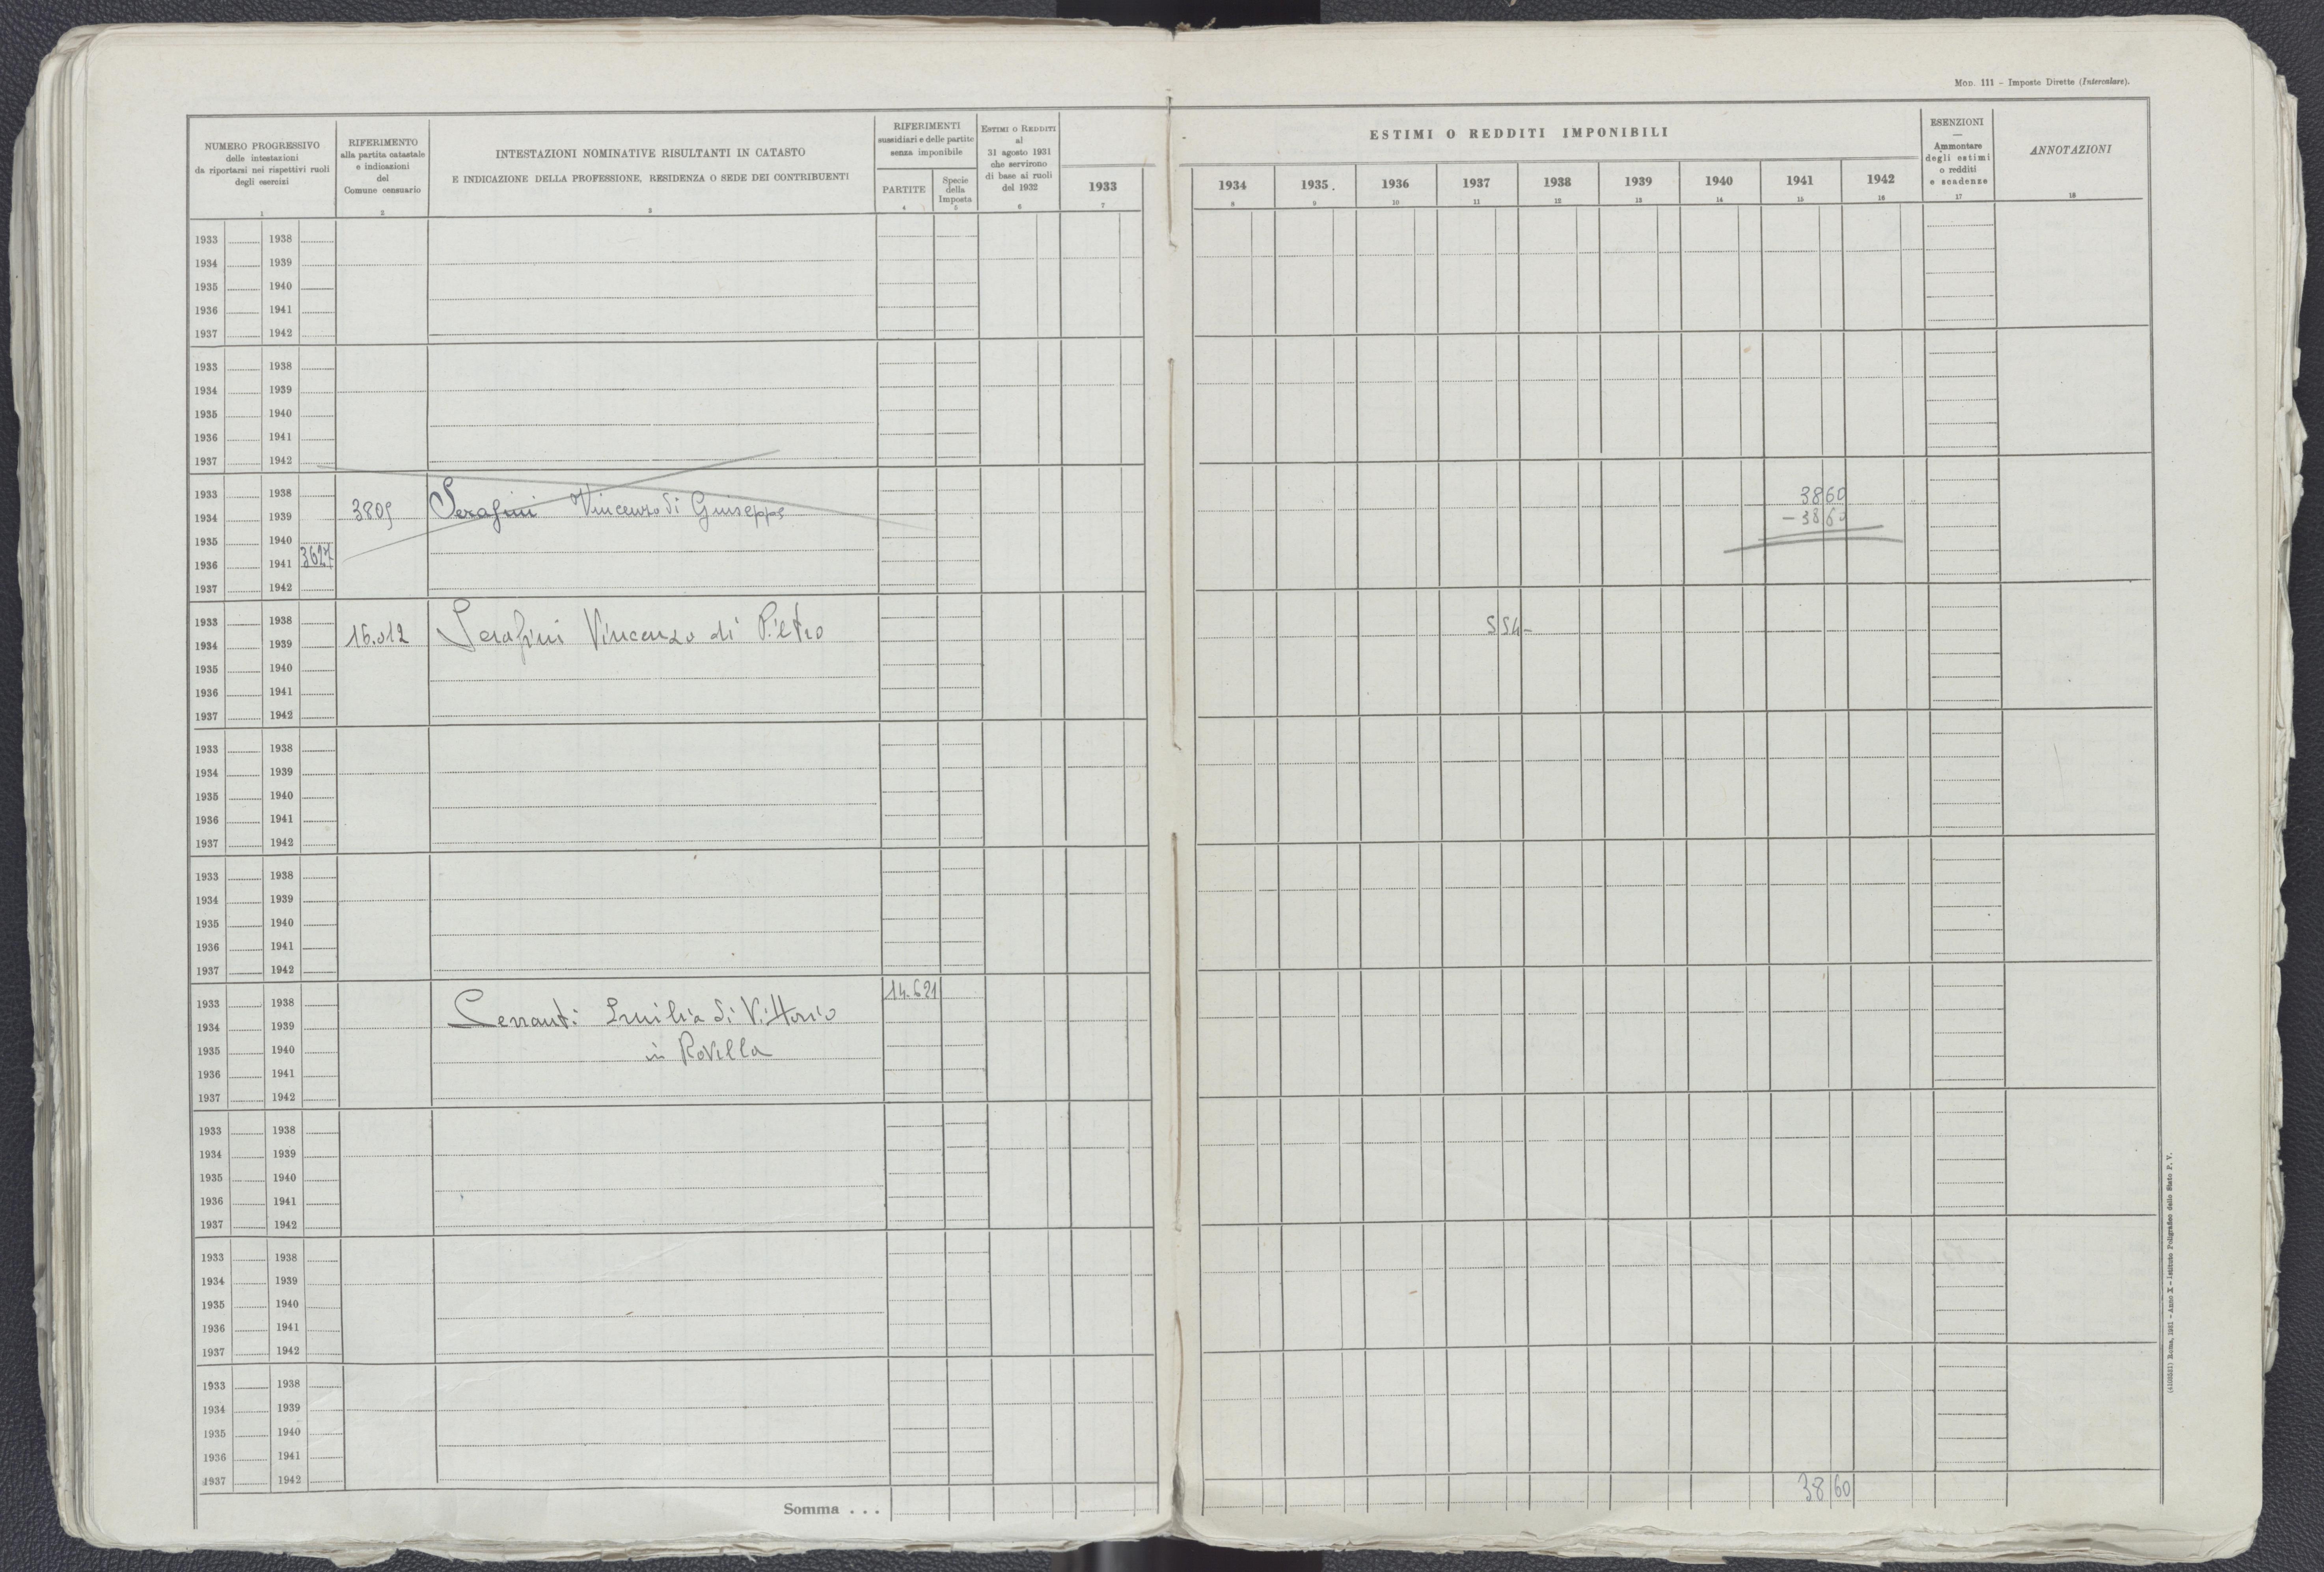 Mod. 111 - Imposte Dirette (Intercalare).
NUMERO PROGRESSIVO
delle intestazioni
da riportarsi nei rispettivi ruoli
degli esercizi
1
RIFERIMENTO
alla partita catastale
e indicazioni
del
Comune censuario
2
INTESTAZIONI NOMINATIVE RISULTANTI IN CATASTO
E INDICAZIONE DELLA PROFESSIONE, RESIDENZA O SEDE DEI CONTRIBUENTI
3
RIFERIMENTI
sussidiari e delle partite
senza imponibile
PARTITE
4
Specie
della
Imposta
5
Estimi o Redditi
al
31 agosto 1931
che servirono
di base ai ruoli
del 1932
6
1933
7
ESTIMI O REDDITI IMPONIBILI
1934 1935 1936 1937 1938 1939 1940 1941 1942
8 9 10 11 12 13 14 15 16
ESENZIONI
—
Ammontare
degli estimi
o redditi
e scadenze
17
ANNOTAZIONI
18
1933 1938
1934 1939
1935 1940
1936 1941
1937 1942
1933 1938
1934 1939
1935 1940
1936 1941
1937 1942
1933 1938 3860
1934 1939 3809 Serafini Vincenzo di Giuseppe - 3860
1935 1940
1936 1941 3627
1937 1942
1933 1938
1934 1939 16.012 Serafini Vincenzo di Pietro 554-
1935 1940
1936 1941
1937 1942
1933 1938
1934 1939
1935 1940
1936 1941
1937 1942
1933 1938
1934 1939
1935 1940
1936 1941
1937 1942
1933 1938 14.621
1934 1939 Serranti Emilia di Vittorio
1935 1940 in Rovella
1936 1941
1937 1942
1933 1938
1934 1939
1935 1940
1936 1941
1937 1942
1933 1938
1934 1939
1935 1940
1936 1941
1937 1942
1933 1938
1934 1939
1935 1940
1936 1941
1937 1942
Somma . . . 3860
Roma, 1931 - Anno X - Istituto Poligrafico dello Stato P. V.